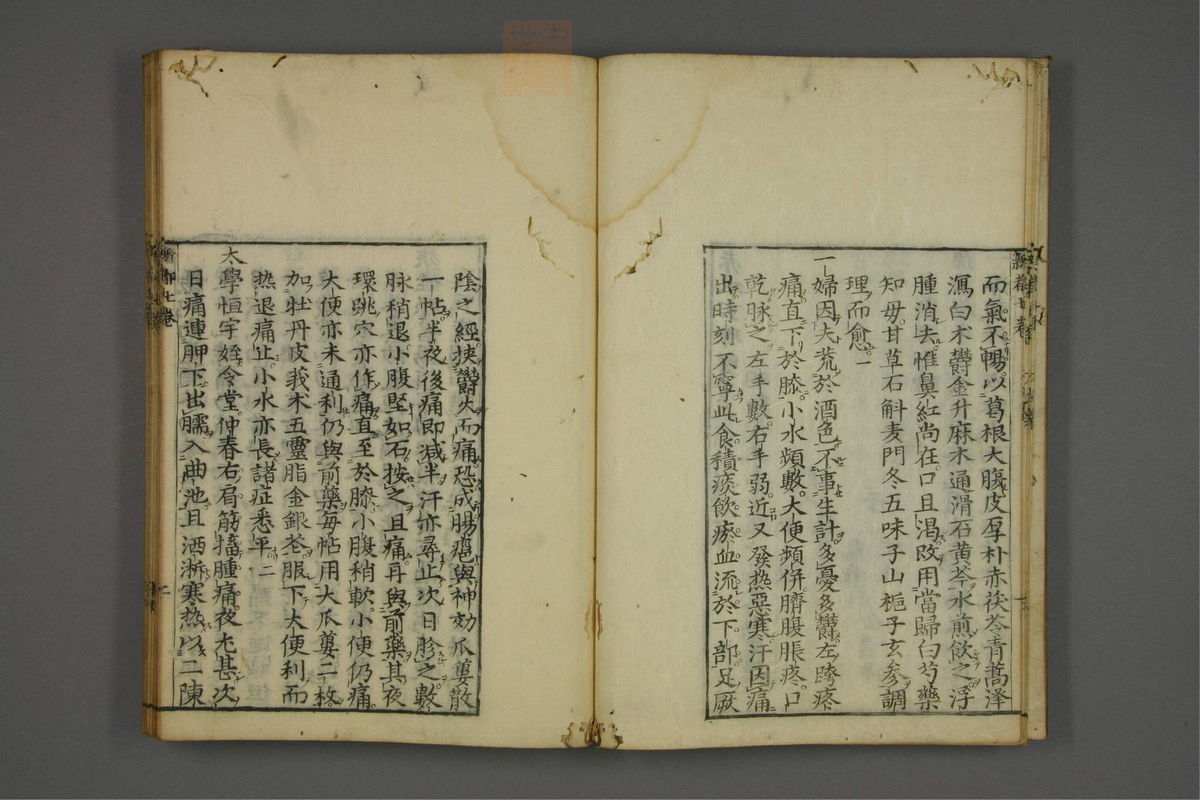 而氣不暢以葛根大腹皮厚朴赤茯苓青蒿澤
瀉白朮欝金升麻木通滑石黄芩水煎飲之浮
腫消去惟鼻紅尚在口且渇改用當歸白芍藥
知母甘草石斛麦門冬五味子山梔子玄参調
理而愈一
一婦因夫荒於酒色不事生計多憂多欝左跨疼
痛直下於膝小水頻數大便頻併臍腹脹疼口
乾脉之左手數右手弱近又發熱惡寒汗因痛
出時刻不寧此食積痰飲瘀血流於下部足厥
陰之經挾欝火而痛恐成腸癰與神効瓜蔞散
一帖半夜後痛即减半汗亦尋止次日胗之數
脉稍退小腹堅如石按之且痛再與前藥其夜
環跳穴亦作痛直至於膝小腹稍軟小便仍痛
大便亦未通利仍與前藥每帖用大瓜蔞二枚
加牡丹皮莪朮五靈脂金銀花服下大便利而
热退痛止小水亦長諸症悉平二
太學恒宇姪令堂仲春右肩筋搐腫痛夜尤甚次
日痛連胛下出臑入曲池且洒淅寒熱以二陳